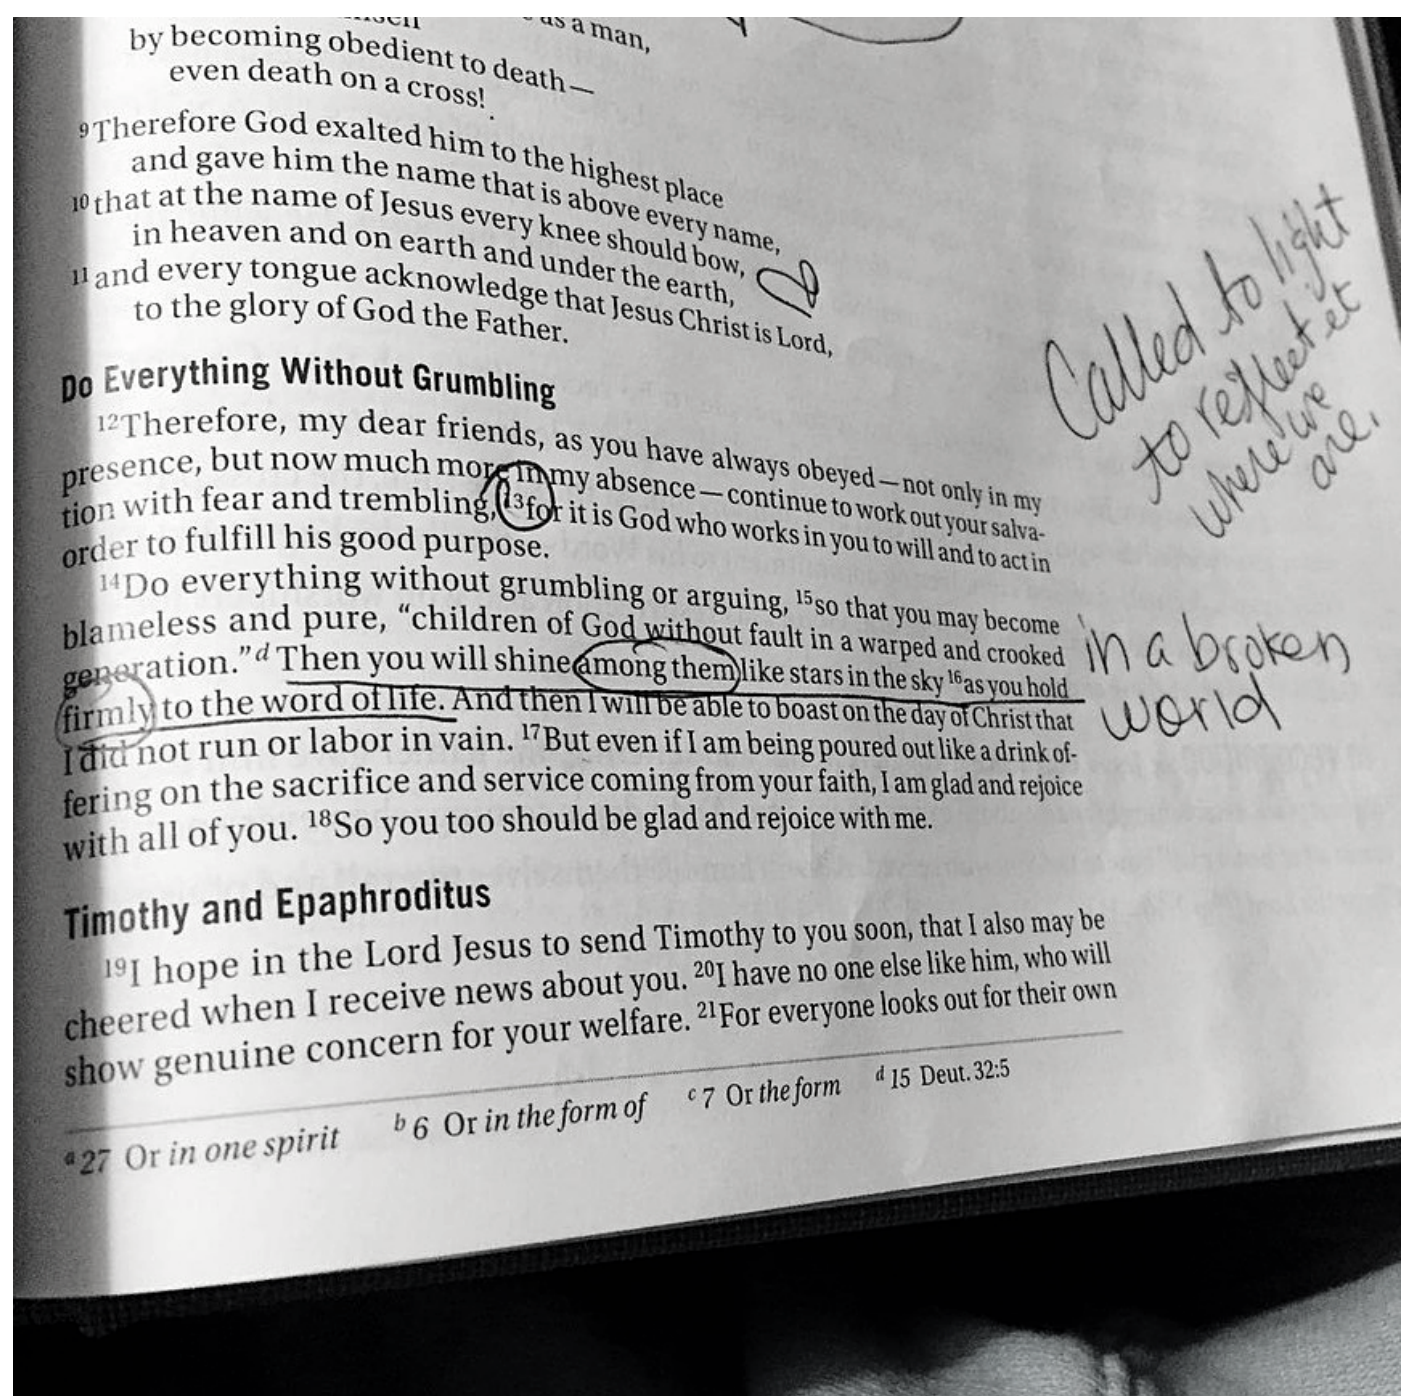 as a man,
by becoming obedient to death—
even death on a cross!
⁹Therefore God exalted him to the highest place
and gave him the name that is above every name,
¹⁰that at the name of Jesus every knee should bow,
in heaven and on earth and under the earth,
¹¹and every tongue acknowledge that Jesus Christ is Lord,
to the glory of God the Father.
Called to light
to reflect it
where we
are.
Do Everything Without Grumbling
¹²Therefore, my dear friends, as you have always obeyed—not only in my
presence, but now much more in my absence—continue to work out your salva-
tion with fear and trembling, ¹³for it is God who works in you to will and to act in
order to fulfill his good purpose.
¹⁴Do everything without grumbling or arguing, ¹⁵so that you may become
blameless and pure, “children of God without fault in a warped and crooked
generation.”ᵈ Then you will shine among them like stars in the sky ¹⁶as you hold
firmly to the word of life. And then I will be able to boast on the day of Christ that
I did not run or labor in vain. ¹⁷But even if I am being poured out like a drink of-
fering on the sacrifice and service coming from your faith, I am glad and rejoice
with all of you. ¹⁸So you too should be glad and rejoice with me.
in a broken
world
Timothy and Epaphroditus
¹⁹I hope in the Lord Jesus to send Timothy to you soon, that I also may be
cheered when I receive news about you. ²⁰I have no one else like him, who will
show genuine concern for your welfare. ²¹For everyone looks out for their own
ᵃ27 Or in one spirit ᵇ6 Or in the form of ᶜ7 Or the form ᵈ15 Deut. 32:5